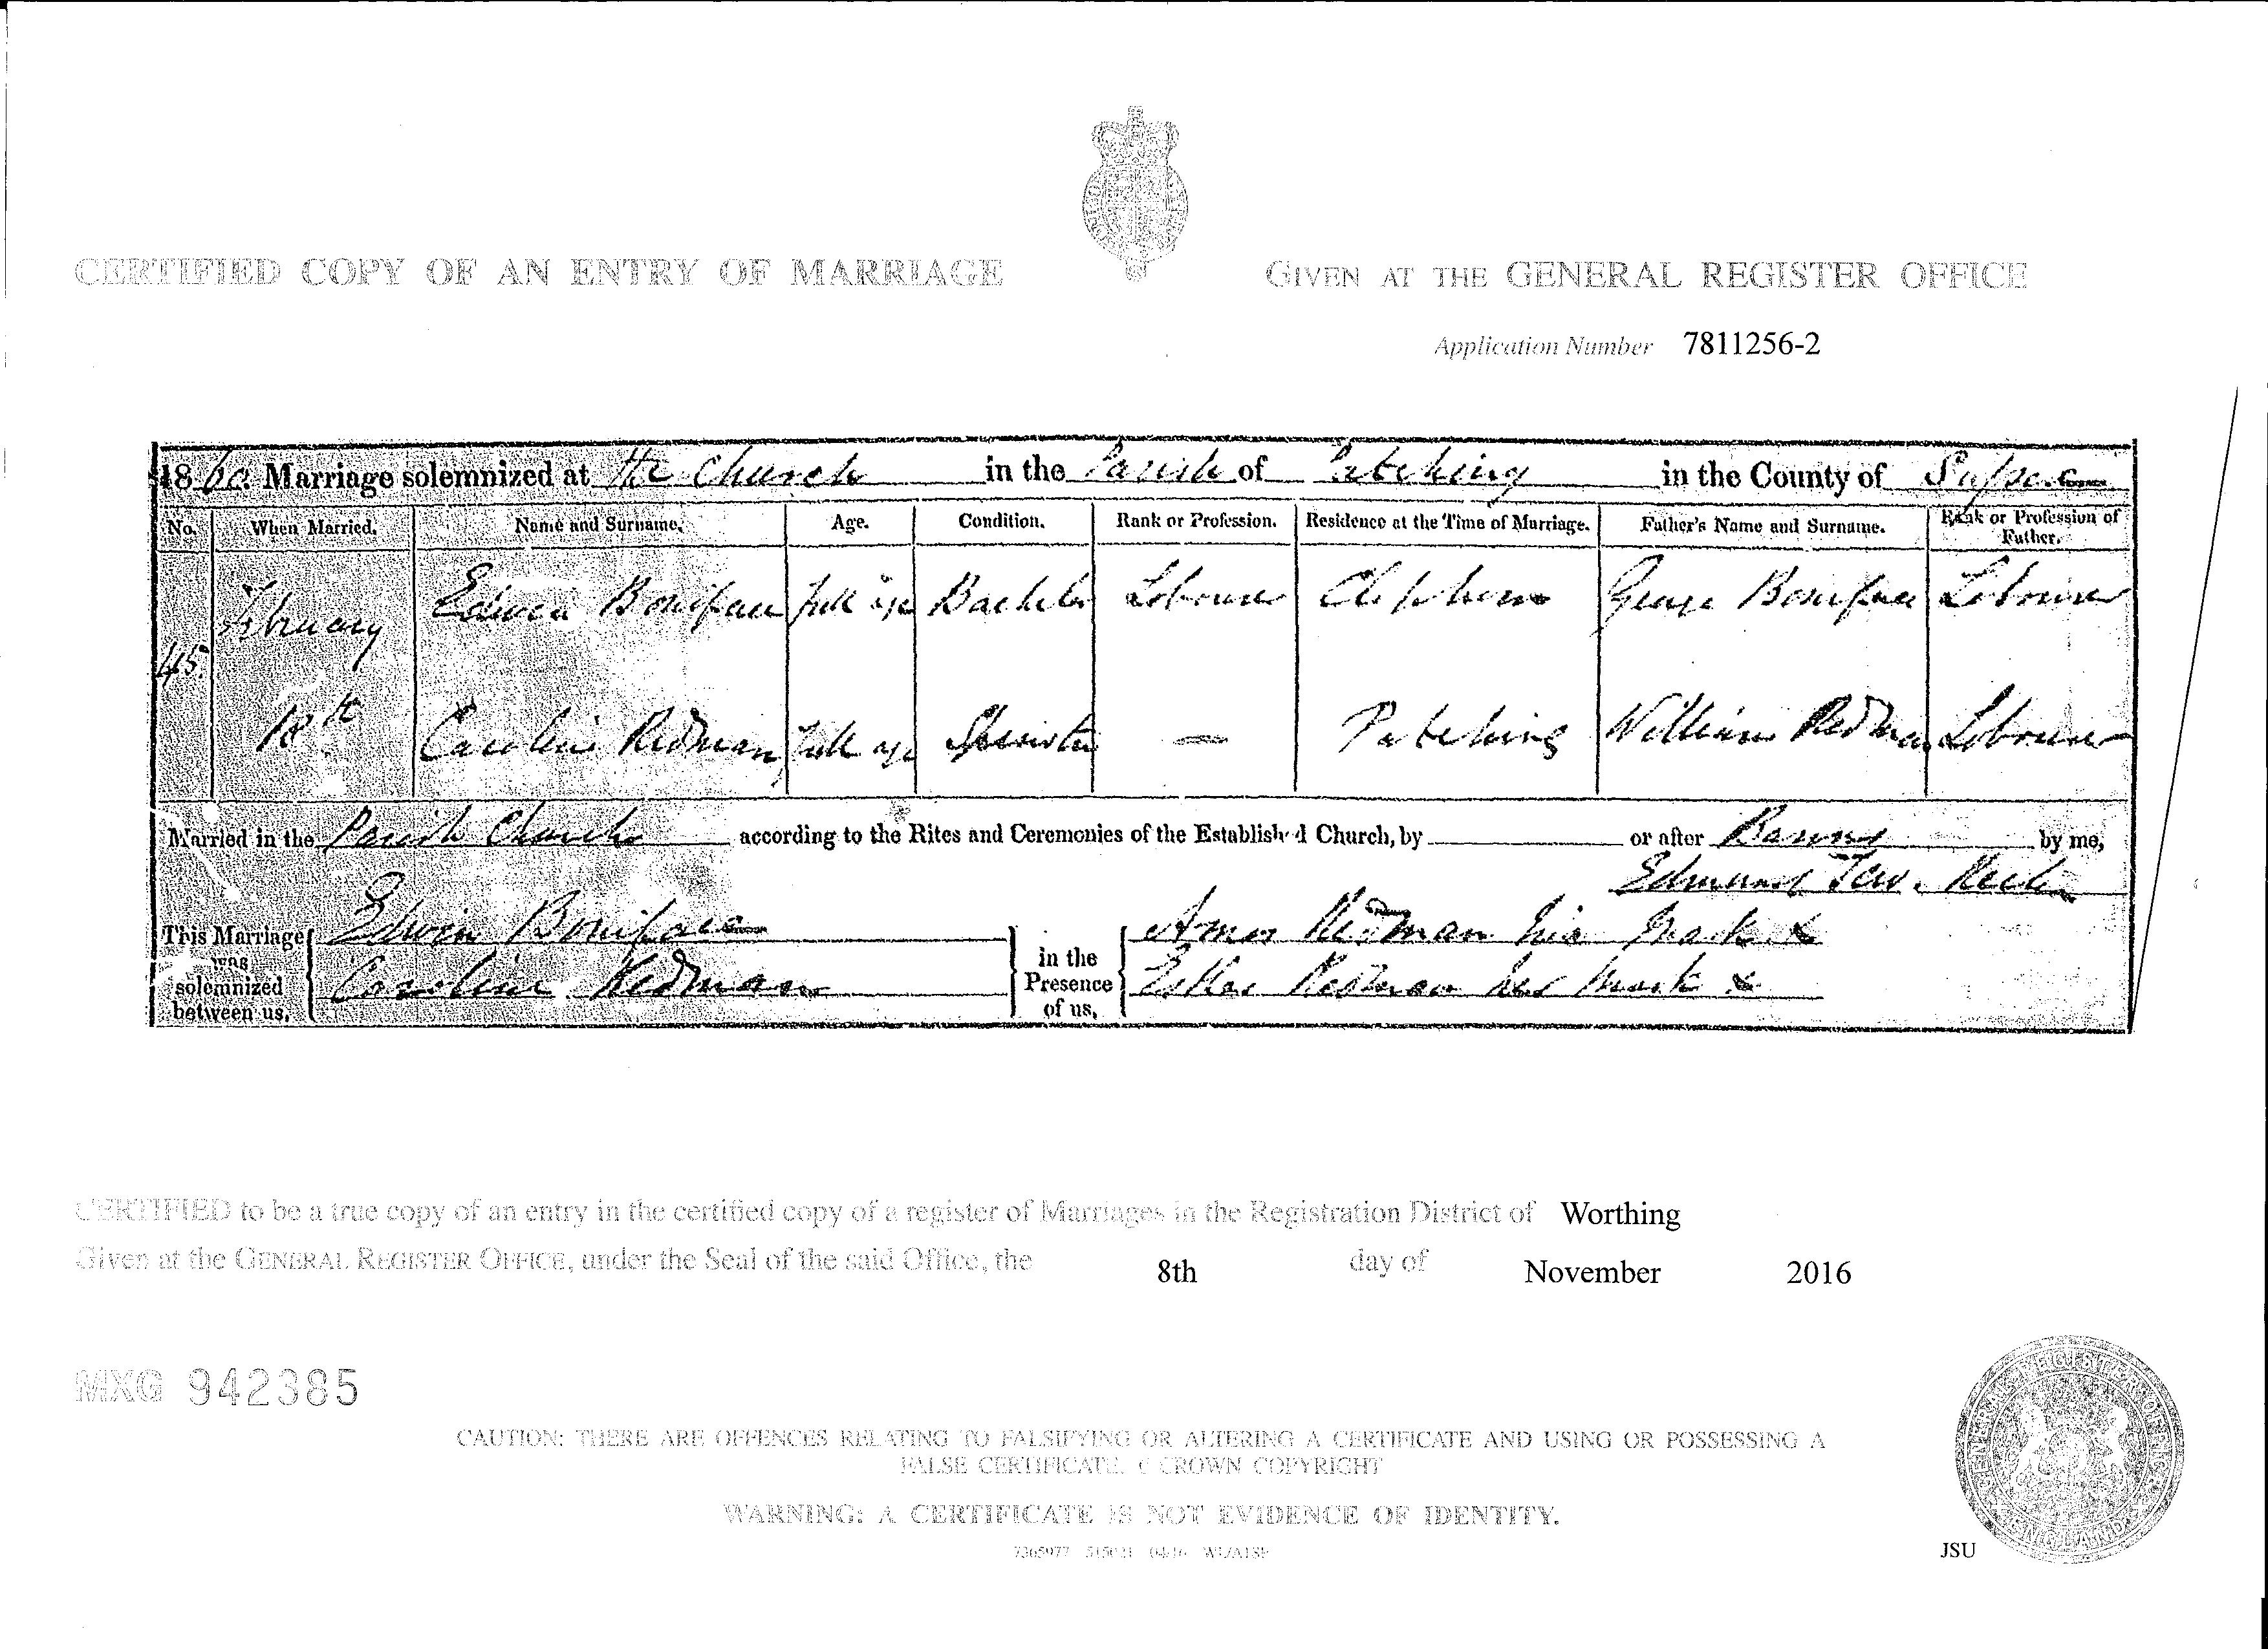 CERTIFIED COPY OF AN ENTRY OF MARRIAGE
GIVEN AT THE GENERAL REGISTER OFFICE
Application Number 7811256-2
1860. Marriage solemnized at the Church in the Parish of Patching in the County of Sussex
No. When Married. Name and Surname. Age. Condition. Rank or Profession. Residence at the Time of Marriage. Father's Name and Surname. Rank or Profession of Father.
45. February Edwin Boniface full age Bachelor Labourer Clapham George Boniface Labourer
18th Caroline Redman full age Spinster — Patching William Redman Labourer
Married in the Parish Church according to the Rites and Ceremonies of the Established Church, by or after Banns by me,
Edmund Tew. Rector
This Marriage was solemnized between us, Edwin Boniface
Caroline Redman
in the Presence of us, Amos Redman his mark x
Esther Redman her mark x
CERTIFIED to be a true copy of an entry in the certified copy of a register of Marriages in the Registration District of Worthing
Given at the GENERAL REGISTER OFFICE, under the Seal of the said Office, the 8th day of November 2016
MXG 942385
CAUTION: THERE ARE OFFENCES RELATING TO FALSIFYING OR ALTERING A CERTIFICATE AND USING OR POSSESSING A
FALSE CERTIFICATE. © CROWN COPYRIGHT
WARNING: A CERTIFICATE IS NOT EVIDENCE OF IDENTITY.
GENERAL REGISTER OFFICE ENGLAND
JSU